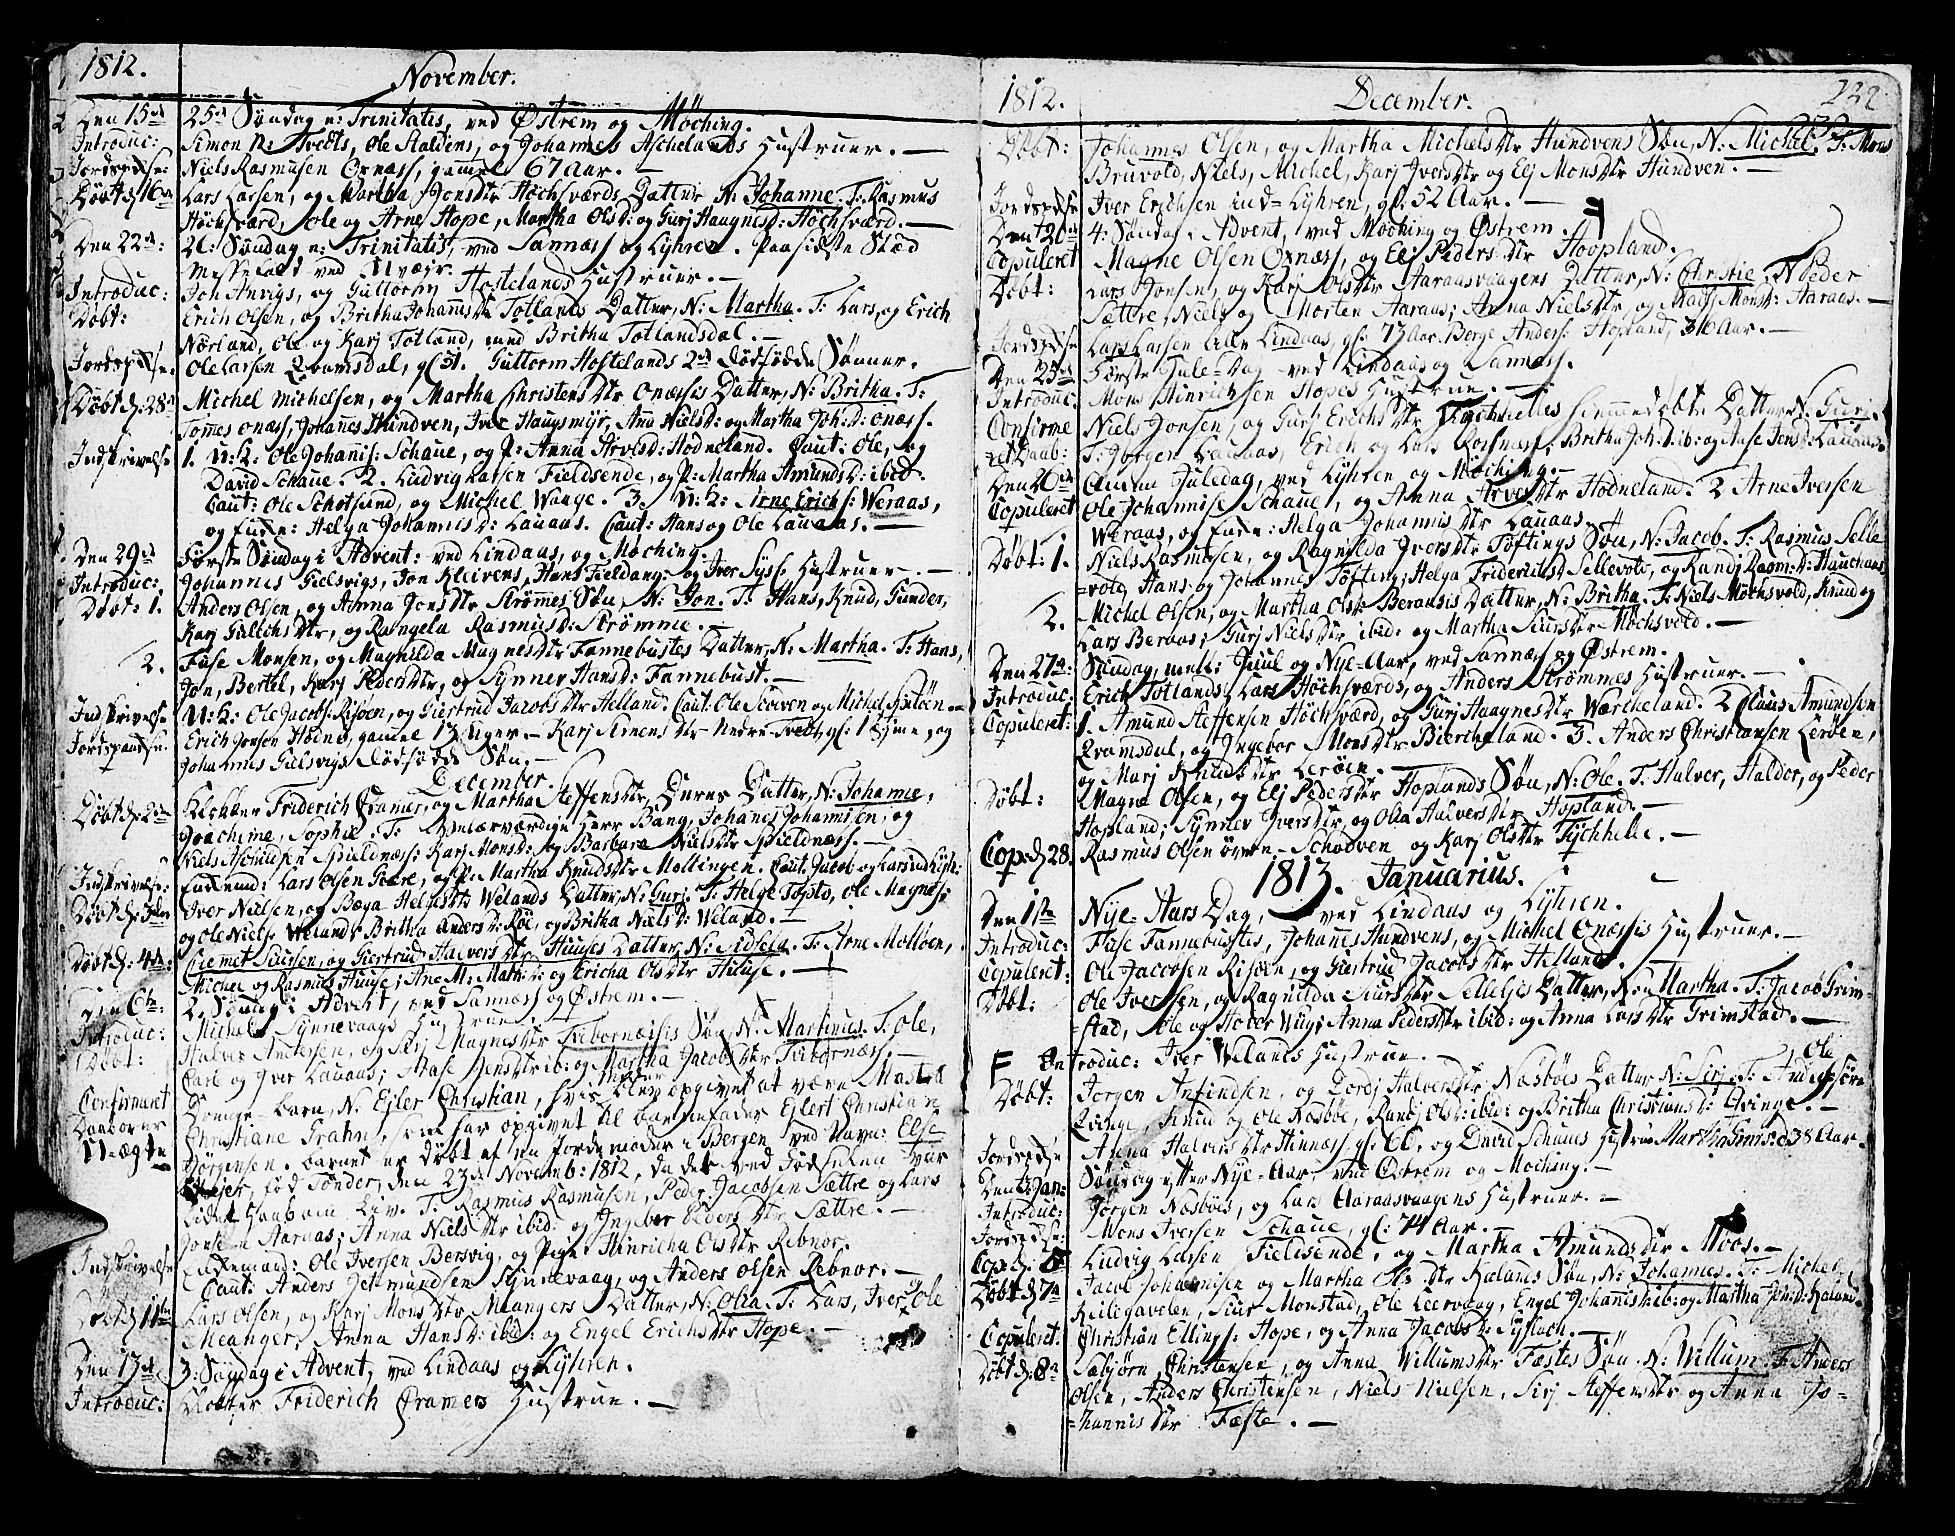 1812. November.
Den 15de 25de Søndag n: Trinitatis, ved Østrem og Møching.
Introduc: Simon N: Tvedts, Ole Staldens, og Johannes Aschelands Hustruer. —
Jordspdse: Niels Rasmusen Ornæss, gammel 67 Aar. —
Døbt d: 16de Lars Larsen, og Martha Jonsdtr Høchsværds Datter N: Johanne. T: Rasmus
Høchsværd, Ole og Arne Hope, Martha Olsd: og Gurj Haagnesd: Høchsværd. —
Den 22de: 26: Søndag n: Trinitatis, ved Sannæss og Lyhren. Paa sidste Stæd
Messefald ved Uvæjr.
Introduc: Jon Anvigs, og Guttorm Hostelands Hustruer. —
Døbt: Erich Olsen, og Britha Johannisdtr Totlands Datter, N: Martha. T: Lars, og Erich
Nørland, Ole og Karj Totland, med Britha Totlandsdal. —
Jordspdse: Ole Larsen Qvamsdal, gl: 31. Guttorm Hostelands 2de dødfødde Sønner.
Døbt d: 28de Michel Michelsen, og Martha Christensdtr Onæssis Datter, N: Britha. T:
Tomes Onæss, Johanes Hundven, Iver Haugsmyr, Ana Nielsd: og Martha Joh: D: Onæss.
Indskrivelse 1. U: K: Ole Johanis: Schaue, og P: Anna Arvesd: Hodneland. Caut: Ole, og
David Schaue. 2. Ludvig Larsen Fieldsende, og P: Martha Amundsd: ibid.
Caut: Ole Schotsund, og Michel Wange. 3. U: K: Arne Erichs: Weraas,
og Enke: Helga Johannisd: Lauaas. Caut: Hans og Ole Lauaas. —
Den 29de Første Søndag i Advent: ved Lindaas, og Møching.
Introduc: Johannes Gielsvigs, Jon Kleivens, Hans Fieldangr og Iver Syslaks Hustruer. —
Døbt: 1. Anders Olsen, og Anna Jonsdtr Strømmes Søn, N: Jon. T: Hans, Knud, Gunder,
Karj Gulechsdtr, og Rangela Rasmusd: Strømme. —
2. Fuse Monsen, og Magnilda Magnesdtr Fannebustes Datter, N: Martha. T: Hans,
Jon, Bertel, Karj Pedersdtr, og Synnev Hansd: Fannebust. —
Indskrivelse U: K: Ole Jacobs: Risøen, og Giertrud Jacobsdtr Helland. Caut: Ole Scoven og Michel Spitøen —
Jordspaadse: Erich Jonsen Hodne, gamle 13 Uger. — Karj Arnensdtr Nedre-Tvedt, gl: 1 Time, og
Johannes Gielsvigs Dødfødde Søn. —
December.
Døbt d: 2de Klokker Friderich Cramer, og Martha Steffensdtr, Deres Datter, N: Johanne,
Joachime, Sophie. T: Velærværdige Herr Bang, Johanes Johannisen, og
Niels Aschildsen Spieldnæss: Karj Monsd: og Barbara Nielsdtr Spieldnæss. —
Indskrivelse: Enkemd: Lars Olsen Feste, og P: Martha Knudsdtr Mollingen. Caut: Jacob og Lars ind Lyhr:
Døbt d: 3die Iver Nielsen, og Bæga Helgesdtr Welands Datter, N: Gurj. T: Helge Topsto, Ole Magnes:
og Ole Niels: Weland; Britha Andersd: Røe, og Britha Nielsd: Weland. —
Døbt d: 4de: Clemet Siursen, og Giertrud Halversdtr Huuses Datter, N: Sidsela. T: Arne Moltøen,
Michel og Rasmus Huuse; Ane M: Mathd: og Ericha Olsdtr Huuse. —
Den 6te: 2. Søndag i Advent, ved Sannæss og Østrem. —
Introduc: Michel Synnevaags Hustrue.
Døbt: Halver Andersen, og Serj Magnesdtr Tvibornæssis Søn, N: Martinus. T: Ole,
Carl og Iver Lauaas; Aase Jensdtr ib: og Martha Jacobsdtr Tvibornæss. —
Confirmeret Drenge-barn, N. Ejler Christian, hvis Moder blev opgivet at være Mastrd
Daaben over Christiane Grahn, som har opgivet til barnefader Ejlert Christian
U-ægte Jørgensen. barnet er døbt af en Jordemoder i Bergen ved Navn: Else
Mejer, fød Tønder, den 23de Novemb: 1812, da det ved Fødselen var
lidet Haab om Liv. T: Rasmus Rasmusen, Peder Jacobsen Sættre og Lars
Jonsen Aaraas; Anna Nielsdtr ibid: og Ingebor Pedersdtr Sættre. —
Indskrivelse Enkemand: Ole Iversen Bersvig, og Pige: Hinricha Olsdtr Rebnor.
Caut: Anders Jetmundsen Synnevaag, og Anders Olsen Rebnor. —
Døbt d: 11te Lars Olsen, og Karj Monsdtr Melangers Datter, N: Olia. T: Lars, Iver og Ole
Meanger, Anna Hansd: ibid: og Engel Erichsdtr Hope. —
Den 13de 3: Søndag i Advent, ved Lindaas og Lyhren.
Introduc: Klokker Friderich Cramers Hustrue. —
1812. December. 222
Døbt: Johannes Olsen, og Martha Michelsdtr Hundvens Søn, N: Michel. T: Mons
Bruvold, Niels, Michel, Karj Iversdtr og Elj Monsdtr Hundven. —
Jordspdse Iver Erichsen ind-Lyhren, gl: 52 Aar. —
Den 20de 4: Søndag i Advent, ved Mocking og Østrem.
Copuleret Magne Olsen Ornæss, og Elj Pedersdtr Hoopland.
Døbt: Lars Jonsen, og Karj Olsdtr Aaraasvaagens Datter, N: Christie. T: Peder
Sættre, Niels og Morten Aaraas; Anna Nielsdtr og Mari Monsd: Aaraas. —
Jordspdse Lars Larsen Lille Lindaas, gl: 73 Aar. Berge Anders: Hopland, 36 Aar. —
Den 25de Første Jule-Dag ved Lindaas og Sannæss.
Introduc: Mons Hinrichsen Hopes Hustrue. —
Confirme Niels Jonsen, og Gurj Erichsdtr Tychhelles hjemmedøbte Datter N: Gurj.
ret Daab: T: Jørgen Lauaas, Erich og Lars Rossnæss; Britha Joh: D: ib: og Aase Jensd: Lauaas
Den 26de Anden Juledag, ved Lyhren og Mocking. —
Copuleret Ole Johannisen Schaue, og Anna Arvesdtr Hodneland. 2 Arne Iversen
Weraas, og Enke: Helga Johannisdtr Lauaas.
Døbt: 1. Niels Rasmusen, og Ragnilda Iversdtr Toftings Søn, N: Jacob. T: Rasmus Selle
=vold, Hans og Johannes Tofting; Helga Friderichsd: Sellevold, og Randj Rasm: D: Hauchaas
2. Michel Olsen, og Martha Olsd: Beraasis Datter, N: Britha. T: Niels Mochsvold, Knud og
Lars Beraas; Gurj Nielsdtr ibid: og Martha Siursdtr Mochsvold. —
Den 27de: Søndag, mell: Juul og Nye-Aar, ved Sannæss og Østrem.
Introduc: Erich Totlands, Lars Høchsværds, og Anders Strømmes Hustruer. —
Copuleret: 1. Amund Steffensen Høchsværd, og Gurj Haagnesdtr Wærcheland. 2 Claus Amundsen
Qvamsdal, og Ingebor Monsdtr Biercheland. 3. Anders Christiansen Lerøen,
og Marj Knudsdtr Lerøen. —
Døbt: Magne Olsen, og Elj Pedersdtr Hoplands Søn, N: Ole. T: Halver, Haldor, og Peder
Hopland; Synnev Iversdtr, og Olia Halversdtr Hopland. —
Cop: d: 28. Rasmus Olsen øvre-Schodven og Karj Olsdtr Tychhelle. —
1813. Januarius.
Den 1ste Nye-Aars Dag, ved Lindaas og Lyhren.
Introduc: Fuse Fannebustes, Johanes Hundvens, og Michel Onæssis Hustruer. —
Copuleret: Ole Jacobsen Risøen, og Giertrud Jacobsdtr Helland.
Døbt: Ole Iversen, og Ragnilda Siursdtr Selleljes Datter, N: Martha. T: Jacob Grim-
=stad, Ole og Hover Wiig; Anna Pedersdtr ibid: og Anna Larsdtr Grimstad. —
Introduc: Iver Welands Hustrue. —
Døbt: Jørgen Anfindsen, og Dordj Halversdtr Næsbøes Datter N: Serj. T: Ole
Qvinge, Knud og Ole Næsbøe, Randj Olsd: ibid: og Britha Christiansd: Qvinge. —
Jordspdse Anna Halversdtr Hinnæss gl: 60, og David Schaues Hustrue Martha 38 Aar.
Den 3: Jan: Søndag efter Nye-Aar, ved Østrem og Mocking. —
Introduc: Jørgen Næsbøes, og Lars Aaraasvaagens Hustruer. —
Jordspdse: Mons Iversen Schaue, gl: 74 Aar. —
Cop: d: 5 Ludvig Larsen Fieldsende, og Martha Amundsdtr Moos. —
Døbt d: 7de Jacob Johannisen og Martha Olsdtr Kalands Søn, N: Johannes. T: Michel
Keilegavelen, Siur Monstad, Ole Leervaag, Engel Johannisd: ib: og Martha Joh: D: Kaland.
Copuleret: Christian Ellings: Hope, og Anna Jacobsd: Syslach. —
Døbt d: 8de Sæbjørn Christensen, og Anna Willumsdtr Fæstes Søn N: Willum. T: Anders
Olsen, Anders Christensen, Niels Nielsen, Serj Steffensdtr og Anna Jo-
=hannisdtr Fæste. —